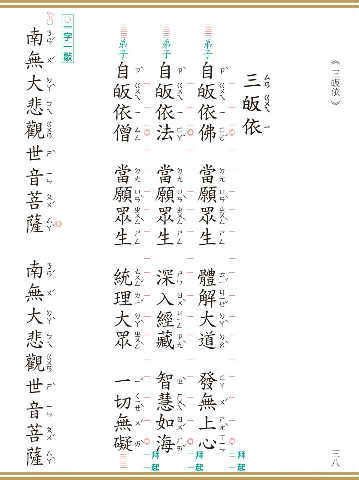 《三皈依》
三皈依
弟子自皈依佛 當願眾生 體解大道 發無上心 拜起
弟子自皈依法 當願眾生 深入經藏 智慧如海 拜起
弟子自皈依僧 當願眾生 統理大眾 一切無礙
一字一敲
南無大悲觀世音菩薩 南無大悲觀世音菩薩
三八